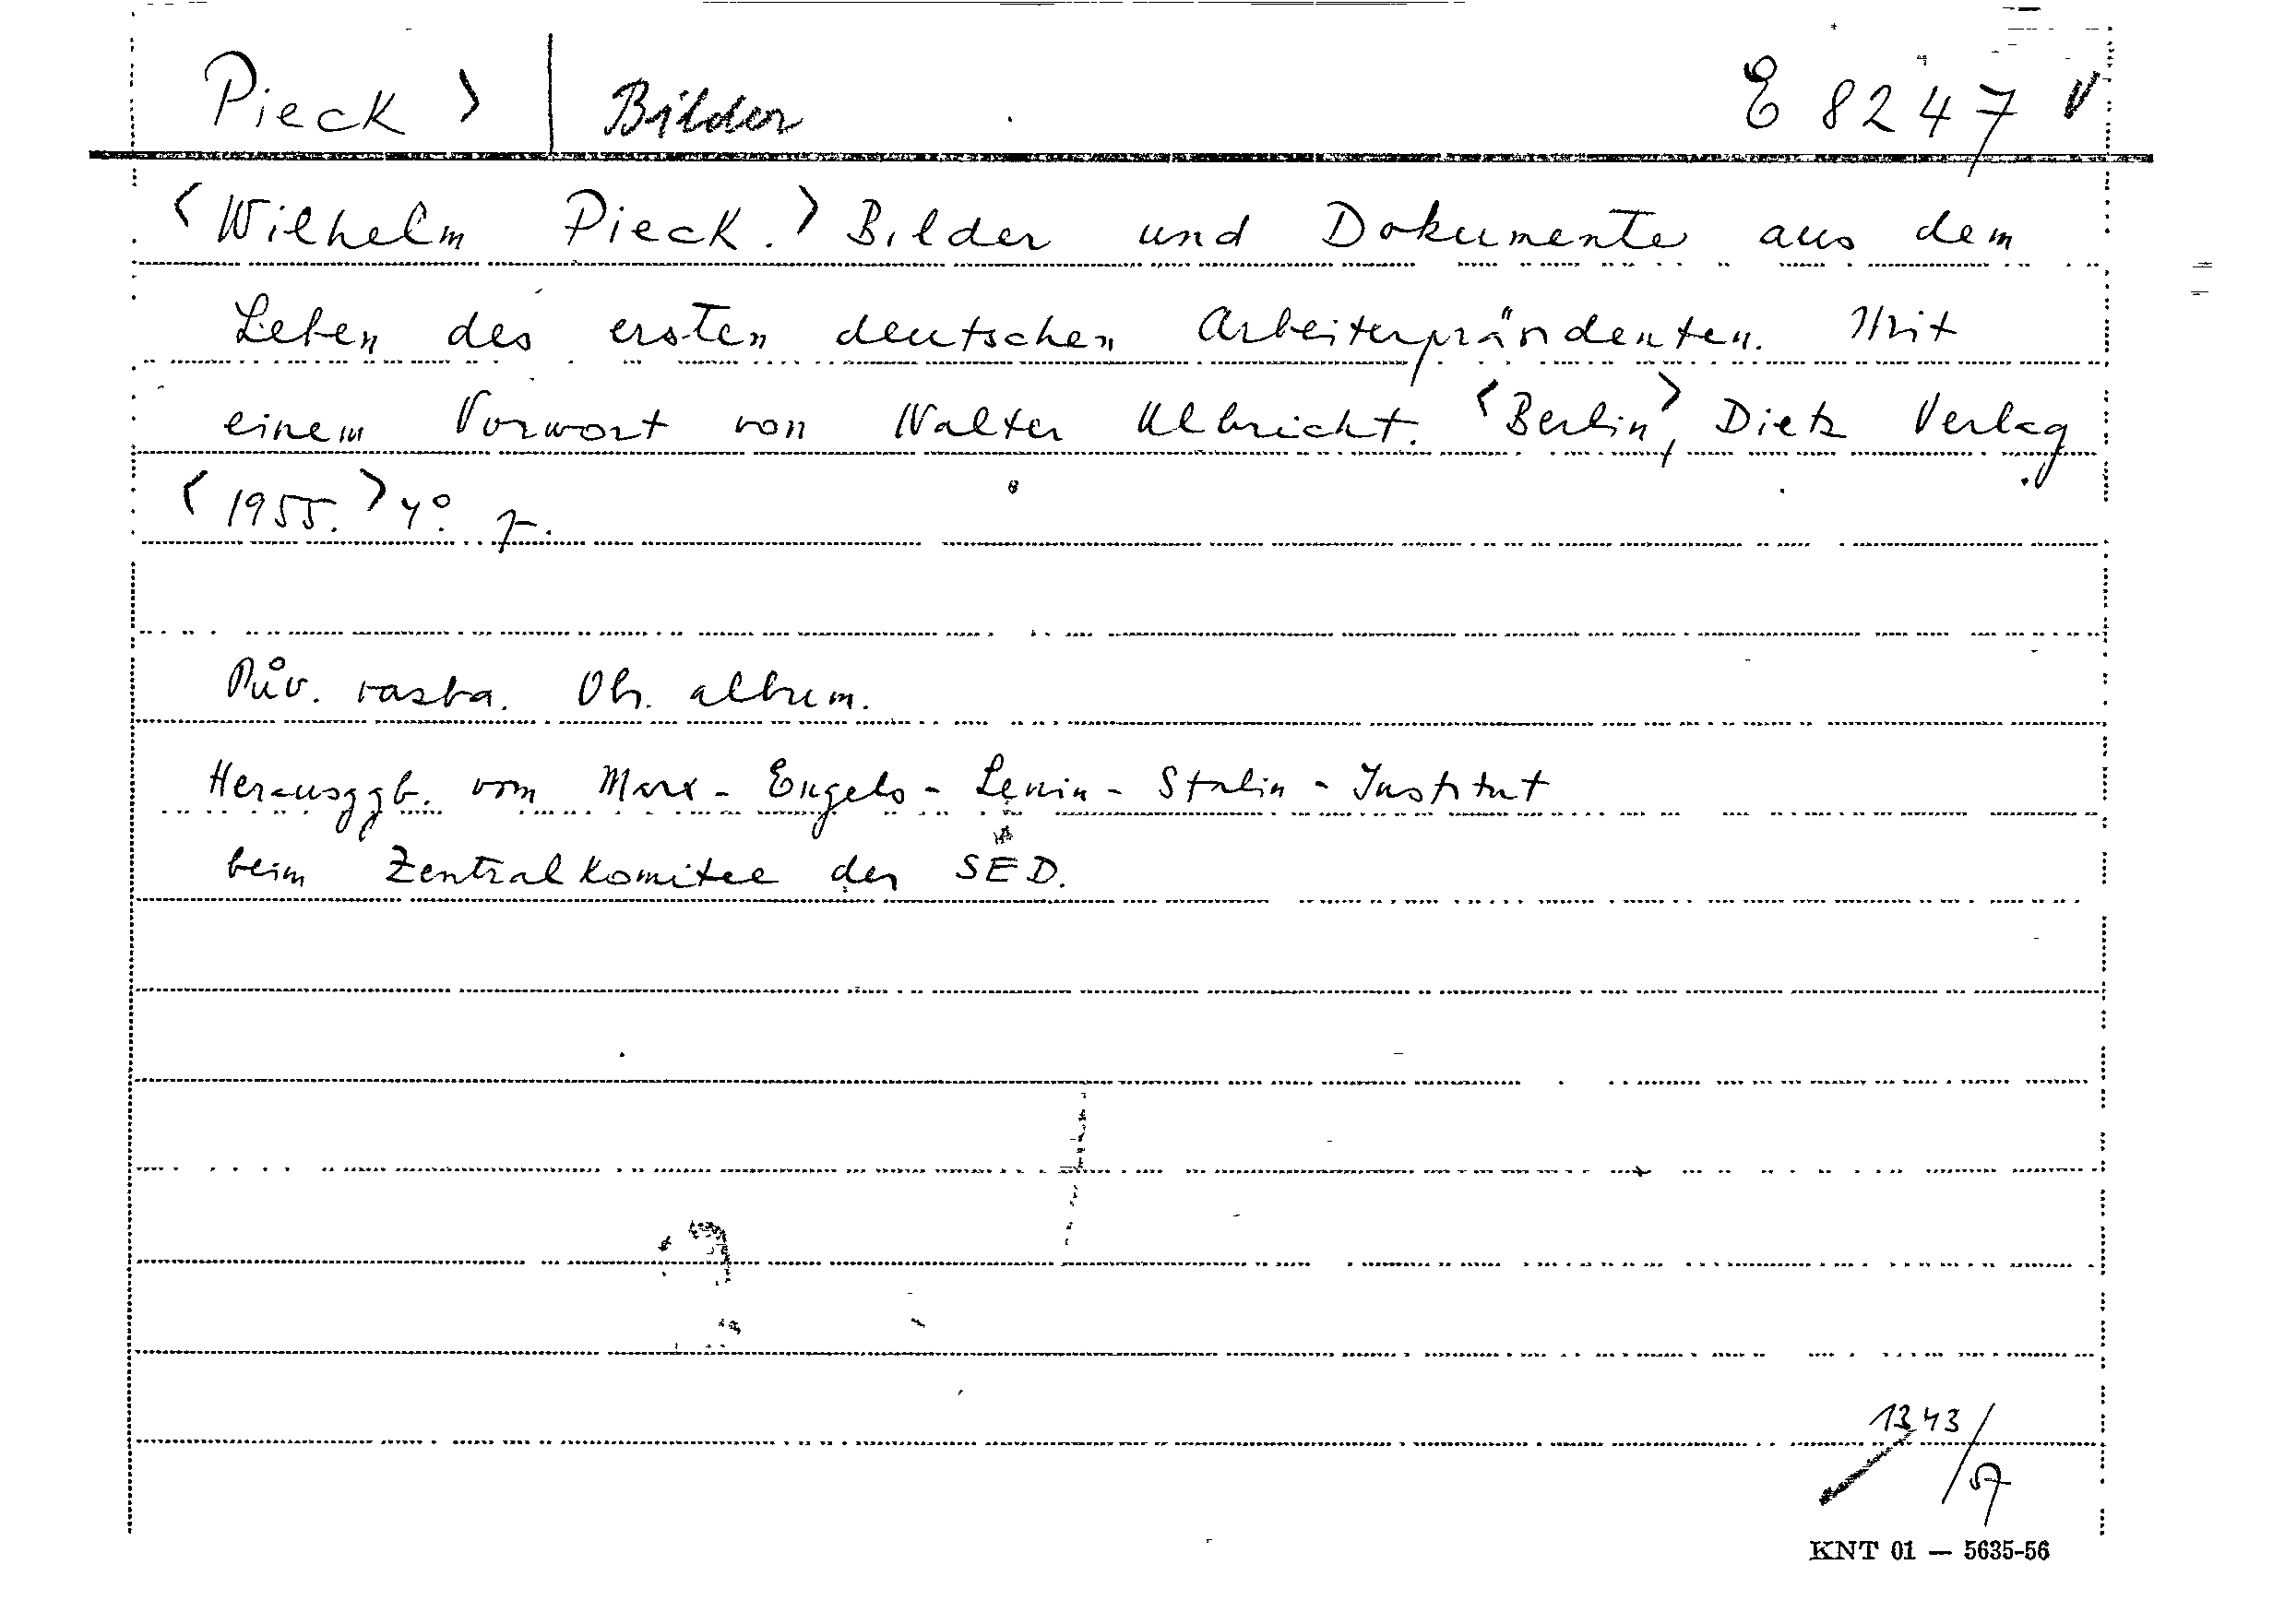 Pieck > | Bilder E 8247 V
<Wilhelm Pieck.> Bilder und Dokumente aus dem
Leben des ersten deutschen Arbeiterpräsidenten. Mit
einem Vorwort von Walter Ulbricht. <Berlin>, Dietz Verlag
<1955.> 4°.
Pův. vazba. Ob. album.
Herausggb. vom Marx-Engels-Lenin-Stalin-Institut
beim Zentralkomitee der SED.
1343/57
KNT 01 — 5635-56